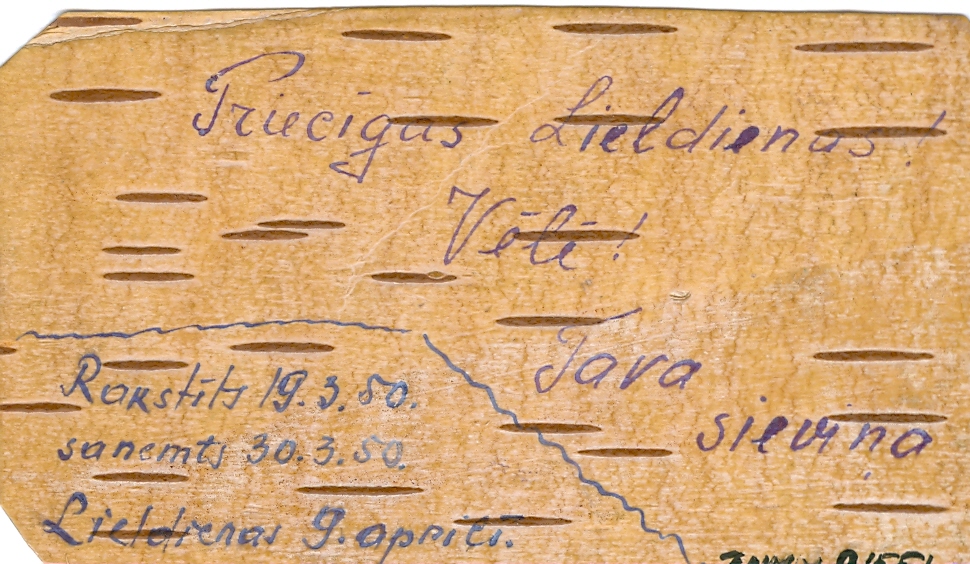 Priecīgas Lieldienas!
Vēlē!
Tava
sieviņa
Rakstīts 19.3.50.
saņemts 30.3.50.
Lieldienas 9. aprīlī.